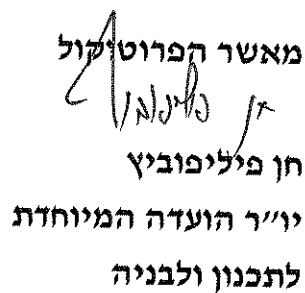 מאשר הפרוטוקול
חן פיליפוביץ
חן פיליפוביץ
יו״ר הועדה המיוחדת
לתכנון ולבניה